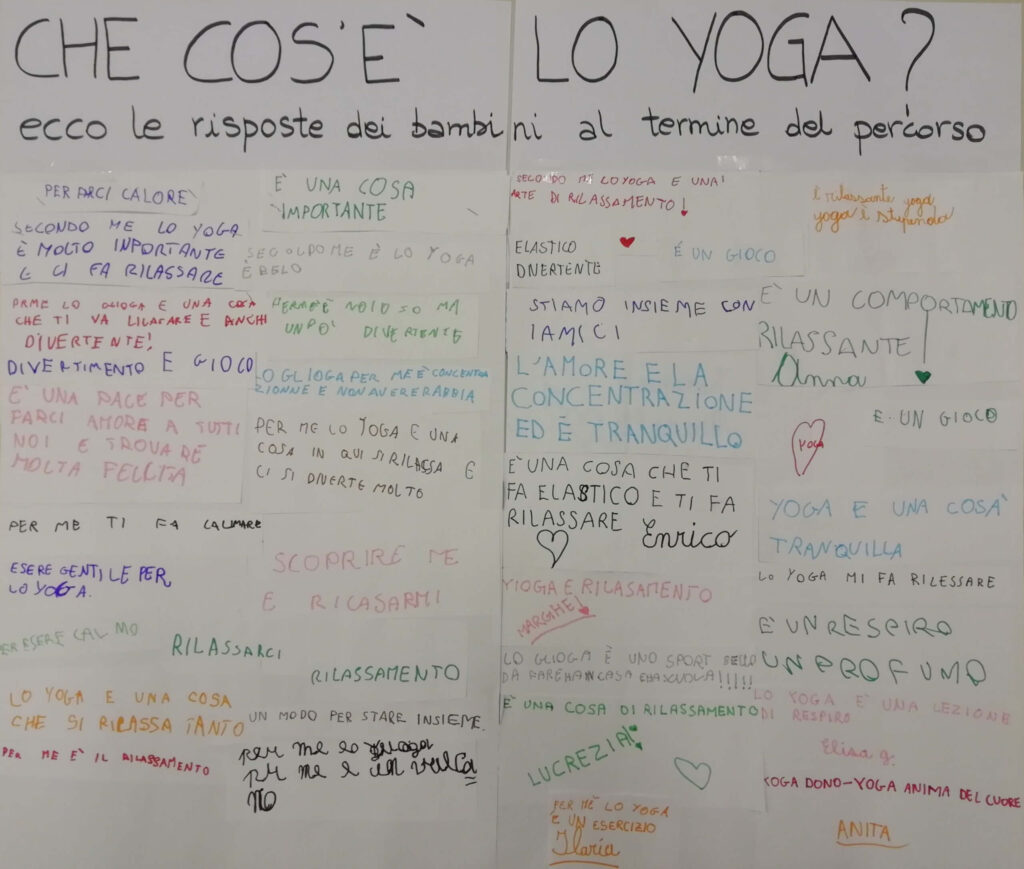 CHE COS'È LO YOGA?
ecco le risposte dei bambini al termine del percorso
PER ARCI CALORE
SECONDO ME LO YOGA
È MOLTO INPORTANTE
E CI FA RILASSARE
PRME LO GLIOGA E UNA COSA
CHE TI VA LILASARE E ANCHI
DIVERTENTE!
DIVERTIMENTO E GIOCO
E' UNA PACE PER
FARCI AMORE A TUTTI
NOI E TROVA RE
MOLTA FELCITA
PER ME TI FA CALMARE
ESERE GENTILE PER
LO YOGA.
PER ESERE CAL MO
RILASSARCI
LO YOGA E UNA COSA
CHE SI RILASSA TANTO
PER ME E' IL RILASSAMENTO
È UNA COSA
IMPORTANTE
SEGOLDO ME È LO YOGA
È BELO
PERME È NOIO SO MA
UN PO' DIVERTENTE
LO GLIOGA PER ME È CONCENTRA
ZIONNE E NON AVERE RABBIA
PER ME LO YOGA E UNA
COSA IN QUI SI RILASSA E
CI SI DIVERTE MOLTO
SCOPRIRE ME
E RILASARMI
RILASSAMENTO
UN MODO PER STARE INSIEME.
per me lo yoga
pr me e un vulca
no
SECONDO ME LO YOGA E UNA'
ARTE DI RILASSAMENTO!
ELASTICO
DIVERTENTE
É UN GIOCO
STIAMO INSIEME CON
I AMICI
L'AMORE E LA
CONCENTRAZIONE
ED È TRANQUILLO
E' UNA COSA CHE TI
FA ELASTICO E TI FA
RILASSARE Enrico
YIOGA E RILASAMENTO
MARGHE!
LO GLIOGA È UNO SPORT BELLO
DA FARE HA IN CASA E HA SCUOLA!!!!!
E' UNA COSA DI RILASSAMENTO
LUCREZIA!
PER ME LO YOGA
E UN ESERCIZIO
Ilaria
È rilassante yoga
yoga è stupendo
E' UN COMPORTAMENO
RILASSANTE
Anna
E' UN GIOCO
YOGA
YOGA E UNA COSA'
TRANQUILLA
LO YOGA MI FA RILESSARE
E' UN RESPIRO
UN PROFUMO
LO YOGA E' UNA LEZIONE
DI RESPIRO
Elisa g.
YOGA DONO-YOGA ANIMA DEL CUORE
ANITA